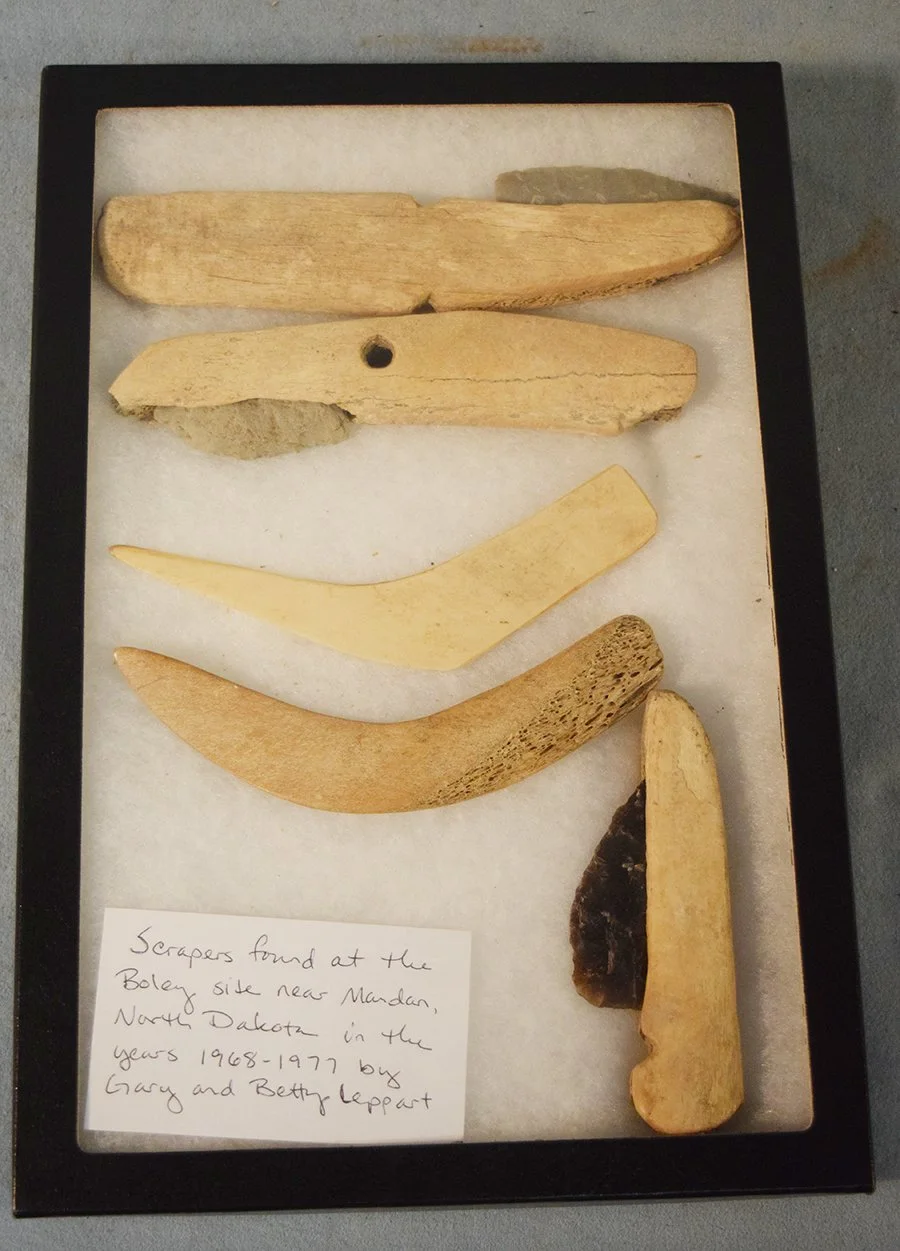 Scrapers found at the
Boley site near Mandan,
North Dakota in the
years 1968-1977 by
Gary and Betty Leppart